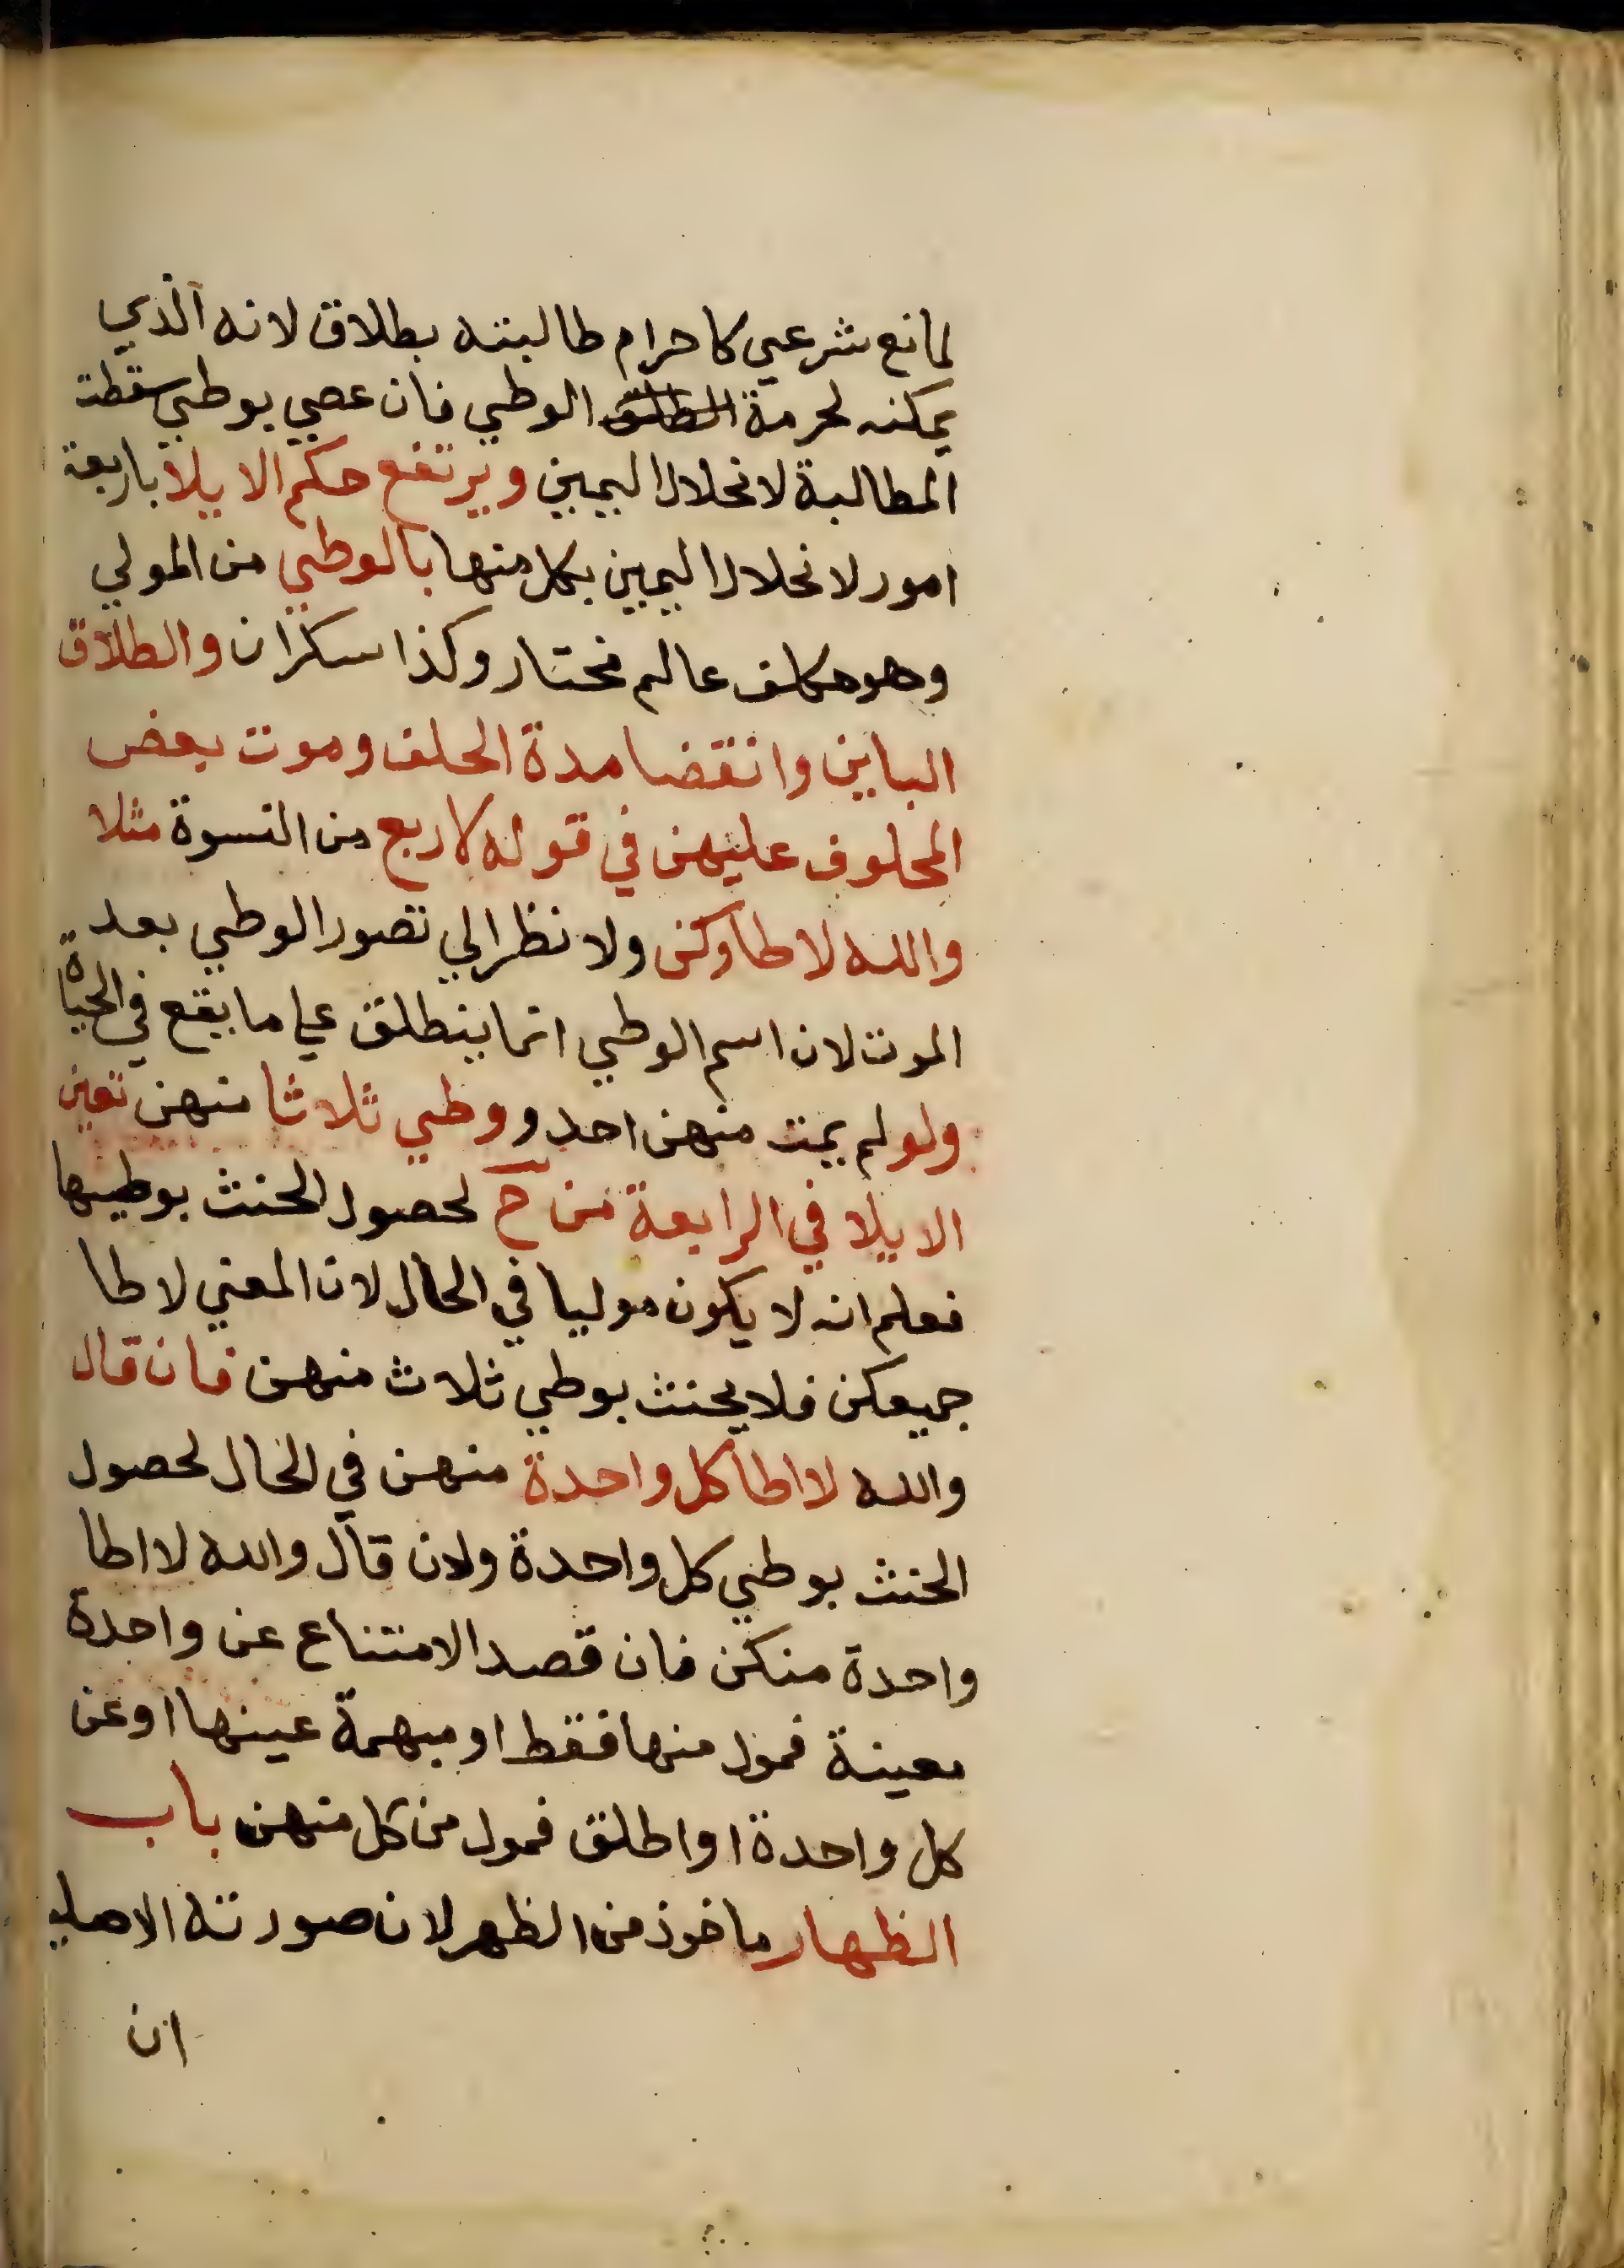 لمانع شرعي كاحرام طالبته بطلاق لانه الذي
يمكنه لحرمة الوطي فان عصي بوطي سقطت
المطالبة لانحلال اليمين ويرتفع حكم الايلا باربعة
امور لانحلال اليمين بكل منها بالوطي من المولي
وهو مكلف عالم مختار وكذا سكران والطلاق
الباين وانقضا مدة الحلف وموت بعض
المحلوف عليهن في قوله لاربع من النسوة مثلا
والله لا طاوكن ولا نظر الي تصور الوطي بعد
الموت لان اسم الوطي انما ينطلق علي ما يقع في الحياة
ولو لم يمت منهن احد و وطي ثلاثا منهن تعين
الايلا في الرابعة من ح لحصول الحنث بوطيها
فعلم انه لا يكون موليا في الحال لان المعني لا طا
جميعكن فلا يحنث بوطي ثلاث منهن فان قال
والله لا اطا كل واحدة منهن في الحال لحصول
الحنث بوطي كل واحدة ولان قال والله لا اطا
واحدة منكن فان قصد الامتناع عن واحدة
معينة فمول منها فقط او مبهمة عينها او عن
كل واحدة او اطلق فمول من كل منهن باب
الظهار ماخوذ من الظهر لان صورته الاصلي
ان